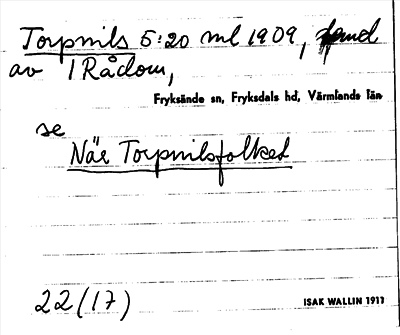 Torpnils 5:20 ml 1909, del
av 1 Rådom,
Fryksände sn, Fryksdals hd, Värmlands län
se
När Torpnilsfolket
22(17)
ISAK WALLIN 1911